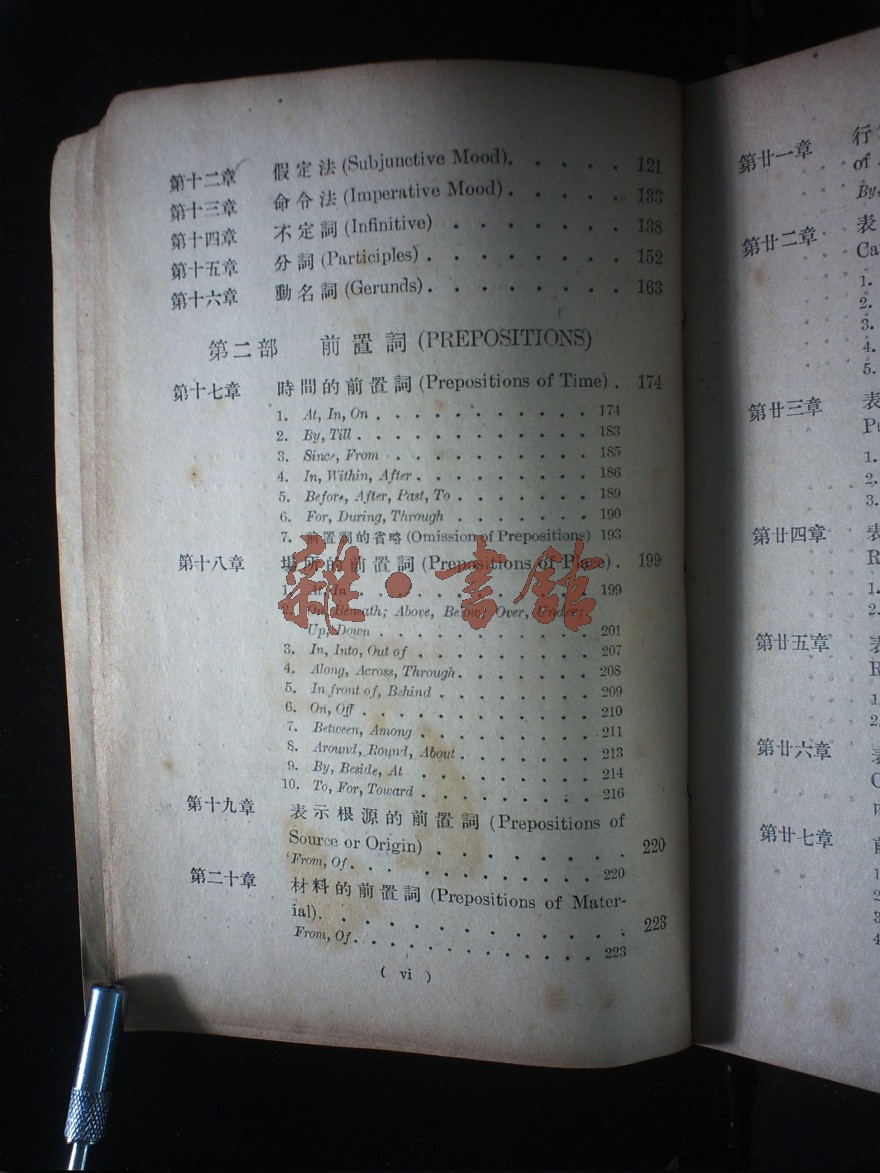 第十二章 假定法 (Subjunctive Mood). . . . . 121
第十三章 命令法 (Imperative Mood) . . . . . 133
第十四章 不定詞 (Infinitive) . . . . . . . 138
第十五章 分詞 (Participles) . . . . . . . . 152
第十六章 動名詞 (Gerunds) . . . . . . . . 163
第二部 前置詞 (PREPOSITIONS)
第十七章 時間的前置詞 (Prepositions of Time) . 174
1. At, In, On . . . . . . . . . . . 174
2. By, Till . . . . . . . . . . . . 183
3. Since, From . . . . . . . . . . 185
4. In, Within, After . . . . . . . . . 186
5. Before, After, Past, To . . . . . . . 189
6. For, During, Through . . . . . . . 190
7. 前置詞的省略 (Omission of Prepositions) 193
第十八章 場所的前置詞 (Prepositions of Place) . 199
1. At, In . . . . . . . . . . . 199
2. On, Beneath; Above, Below; Over, Under;
Up, Down . . . . . . . . . . 201
3. In, Into, Out of . . . . . . . . . 207
4. Along, Across, Through . . . . . . . 208
5. In front of, Behind . . . . . . . . 209
6. On, Off . . . . . . . . . . . 210
7. Between, Among . . . . . . . . . 211
8. Around, Round, About . . . . . . . 213
9. By, Beside, At . . . . . . . . . 214
10. To, For, Toward . . . . . . . . . 216
第十九章 表示根源的前置詞 (Prepositions of
Source or Origin) . . . . . . . . 220
From, Of . . . . . . . . . . . . 220
第二十章 材料的前置詞 (Prepositions of Mater-
ial) . . . . . . . . . . . . . 223
From, Of . . . . . . . . . . . . 223
( vi )
雜·書館
第廿一章 行
of
By,
第廿二章 表
Ca
1.
2.
3.
4.
5.
第廿三章 表
Pu
1.
2.
3.
第廿四章 表
R
1.
2.
第廿五章 表
R
1.
2.
第廿六章 表
C
第廿七章 前
1
2
3
4